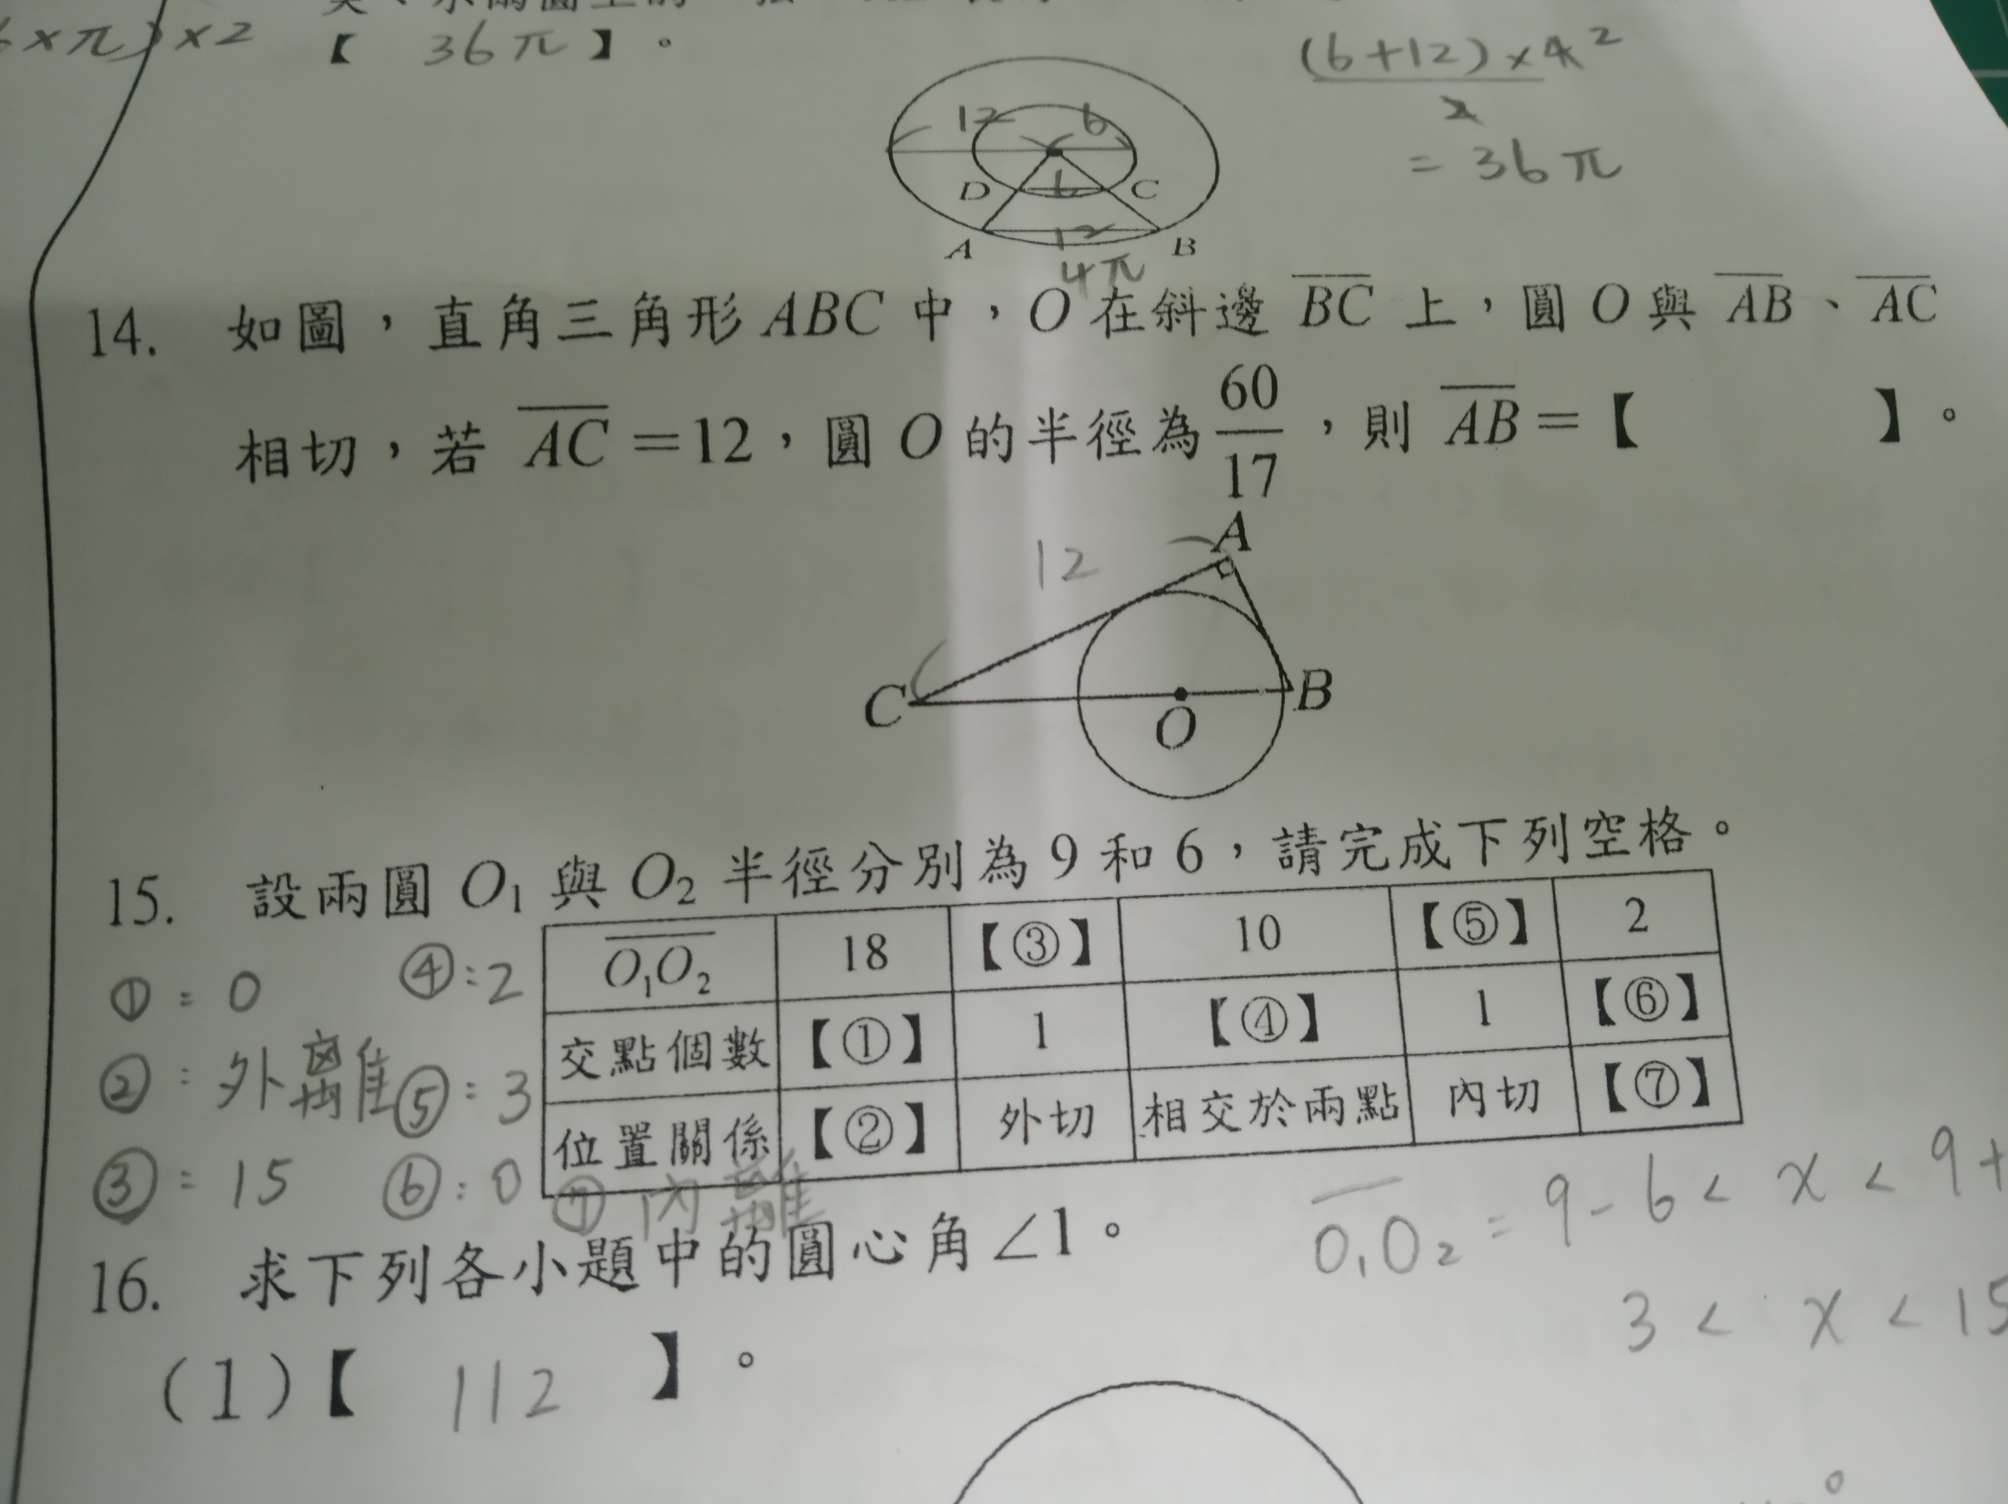 ×π)×2 【 36π 】。
(6+12)×4²
2
= 36π
12 6
D 6 C
12
A B
4π
14. 如圖，直角三角形 ABC 中，O 在斜邊 BC 上，圓 O 與 AB、AC
相切，若 AC＝12，圓 O 的半徑為 60/17，則 AB＝【 】。
A
12
C B
O
15. 設兩圓 O₁ 與 O₂ 半徑分別為 9 和 6，請完成下列空格。
O₁O₂ 18 【③】 10 【⑤】 2
交點個數 【①】 1 【④】 1 【⑥】
位置關係 【②】 外切 相交於兩點 內切 【⑦】
①:0 ④:2
②:外離 ⑤:3
③=15 ⑥:0 ⑦內離
O₁O₂ = 9-6 < x < 9+
3 < x < 15
16. 求下列各小題中的圓心角∠1。
(1)【 112 】。